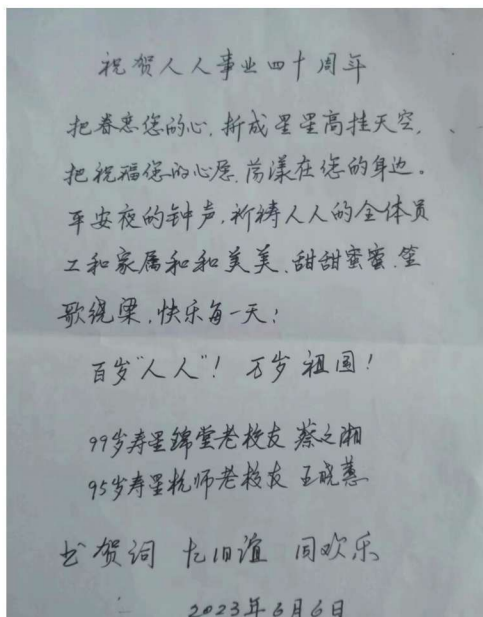 祝贺人人事业四十周年
把眷恋您的心,折成星星高挂天空,
把祝福您的心愿,荡漾在您的身边。
平安夜的钟声,祈祷人人的全体员
工和家属和和美美、甜甜蜜蜜、笙
歌绕梁,快乐每一天!
百岁"人人"! 万岁祖国!
99岁寿星锦堂老校友 蔡之湘
95岁寿星杭师老校友 王晓蕙
书贺词 忆旧谊 同欢乐
2023年6月6日